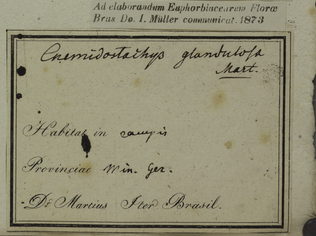 Ad elaborandum Euphorbiacearum Floræ
Bras Do. I. Müller communicat. 1873
Cnemidostachys glandulosa
Mart.
Habitat in campis
Provinciae Min. Ger.
Dr Martius Iter Brasil.